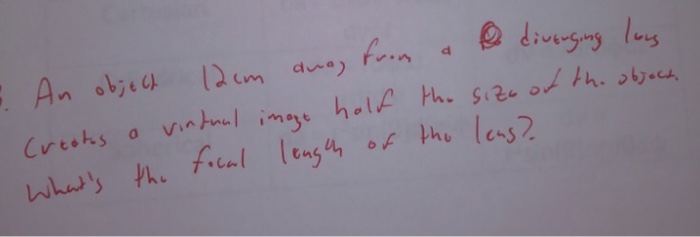 3. An object 12cm away from a diverging lens
Creates a virtual image half the size of the object.
What's the focal length of the lens?